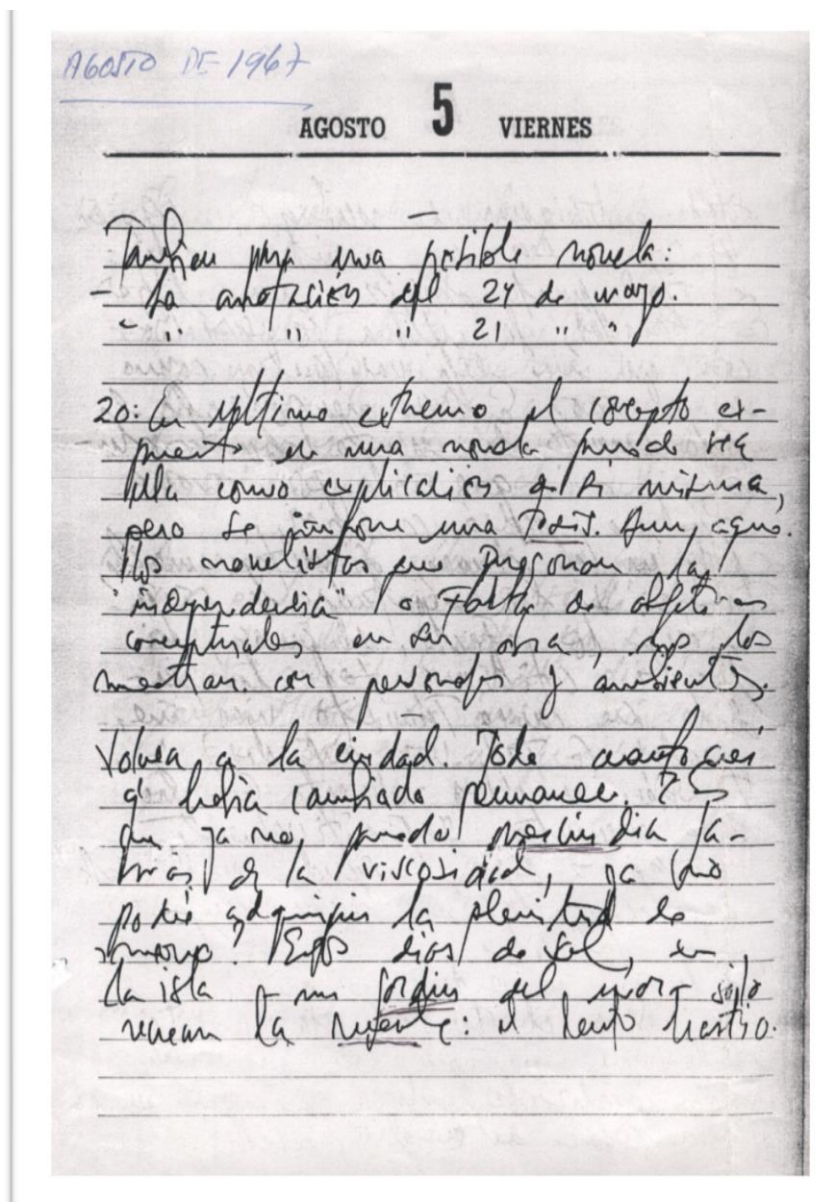 AGOSTO DE 1967
AGOSTO 5 VIERNES
Tambien para una posible novela:
- La anotación del 24 de mayo.
- " " " 21 " "
20: En último extremo el concepto ex-
puesto en una novela puede ser
ella como explicación de si misma,
pero se impone una tesis. Aun aque-
llos novelistas que pregonan la
"independencia" o falta de objetivos
conceptuales en su obra, nos los
muestran con personajes y ambientes.
Volver a la ciudad. Todo cuanto creí
q' había cambiado permanece. ? Es
que ya no puedo
de la viscosidad, ya no
podré adquirir la plenitud de
nuevo? Estos días de sol, en
la isla y un del mora sólo
la : el lento hastío.